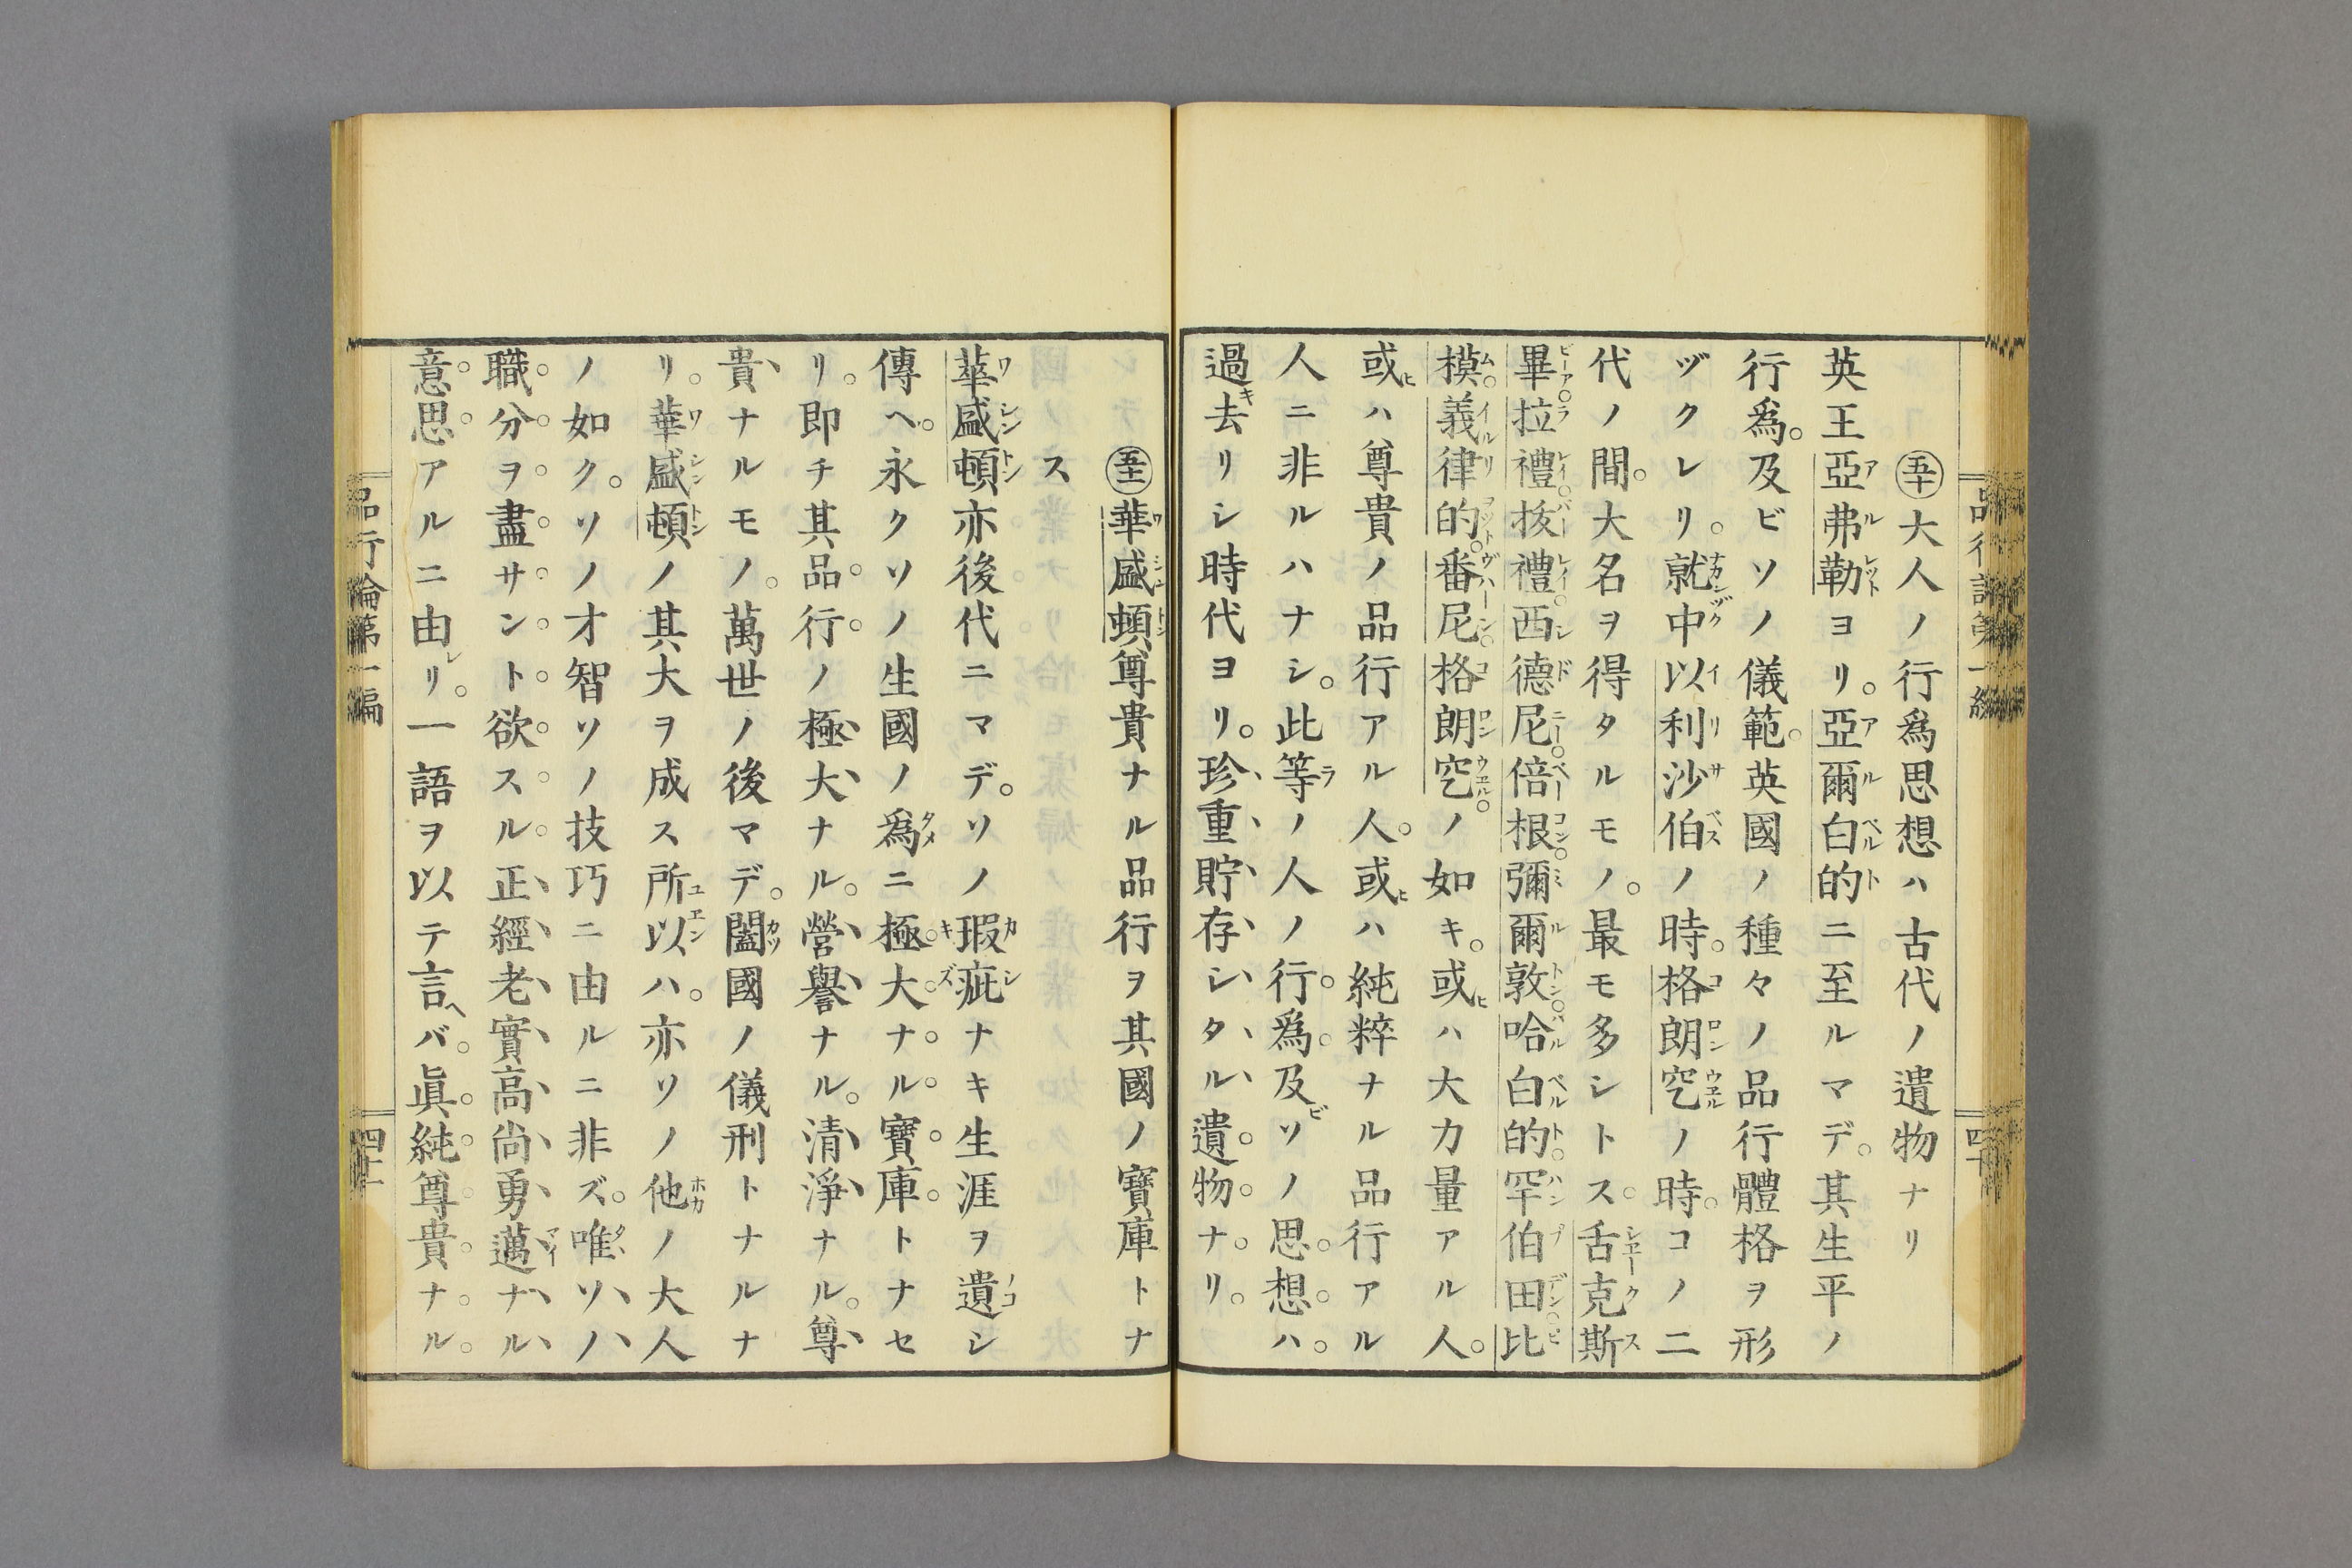 ㊿大人ノ行爲思想ハ古代ノ遺物ナリ
英王亞弗勒ヨリ。亞爾白的ニ至ルマデ。其生平ノ
行爲。及ビソノ儀範。英國ノ種々ノ品行體格ヲ形
ヅクレリ。就中以利沙伯ノ時。格朗空ノ時。コノ二
代ノ間。大名ヲ得タルモノ。最モ多シトス。舌克斯
畢。拉禮。拔禮。西德尼。倍根。彌爾敦。哈白的。罕伯田。比
模。義律的。番尼。格朗空。ノ如キ。或ハ大力量アル人。
或ハ尊貴ノ品行アル人。或ハ純粹ナル品行アル
人ニ非ルハナシ。此等ノ人ノ行爲。及ビソノ思想ハ。
過去リシ時代ヨリ。珍重貯存シタル遺物ナリ。
品行論第一編
四十
五十一華盛頓尊貴ナル品行ヲ其國ノ寶庫トナ
ス
華盛頓亦後代ニマデ。ソノ瑕疵ナキ生涯ヲ遺シ
傳ヘ。永クソノ生國ノ爲ニ極大ナル寶庫トナセ
リ。即チ其品行ノ極大ナル。營譽ナル。清淨ナル。尊
貴ナルモノ。萬世ノ後マデ。闔國ノ儀刑トナルナ
リ。華盛頓ノ其大ヲ成ス所以ハ。亦ソノ他ノ大人
ノ如ク。ソノ才智ソノ技巧ニ由ルニ非ズ。唯ソノ
職分ヲ盡サント欲スル正經老實高尚勇邁ナル
意思アルニ由リ。一語ヲ以テ言ヘバ。眞純尊貴ナル
品行論第一編
四十一